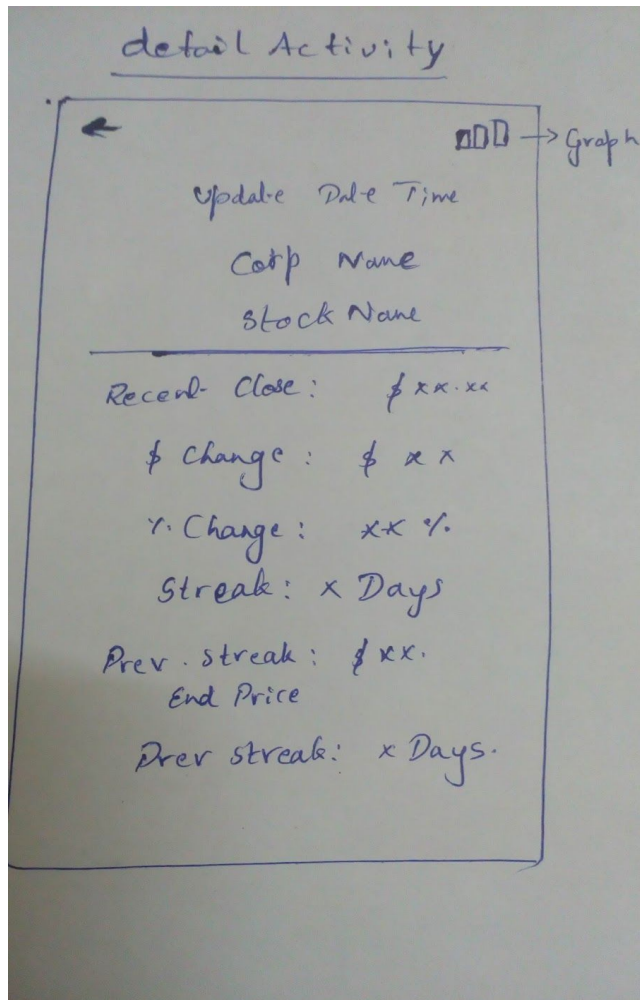 detail Activity
→ Graph
Update Date Time
Corp Name
Stock Name
Recent Close: $ xx.xx
$ Change: $ x x
% Change: xx %
Streak: x Days
Prev. Streak: $ xx.
End Price
Prev streak: x Days.